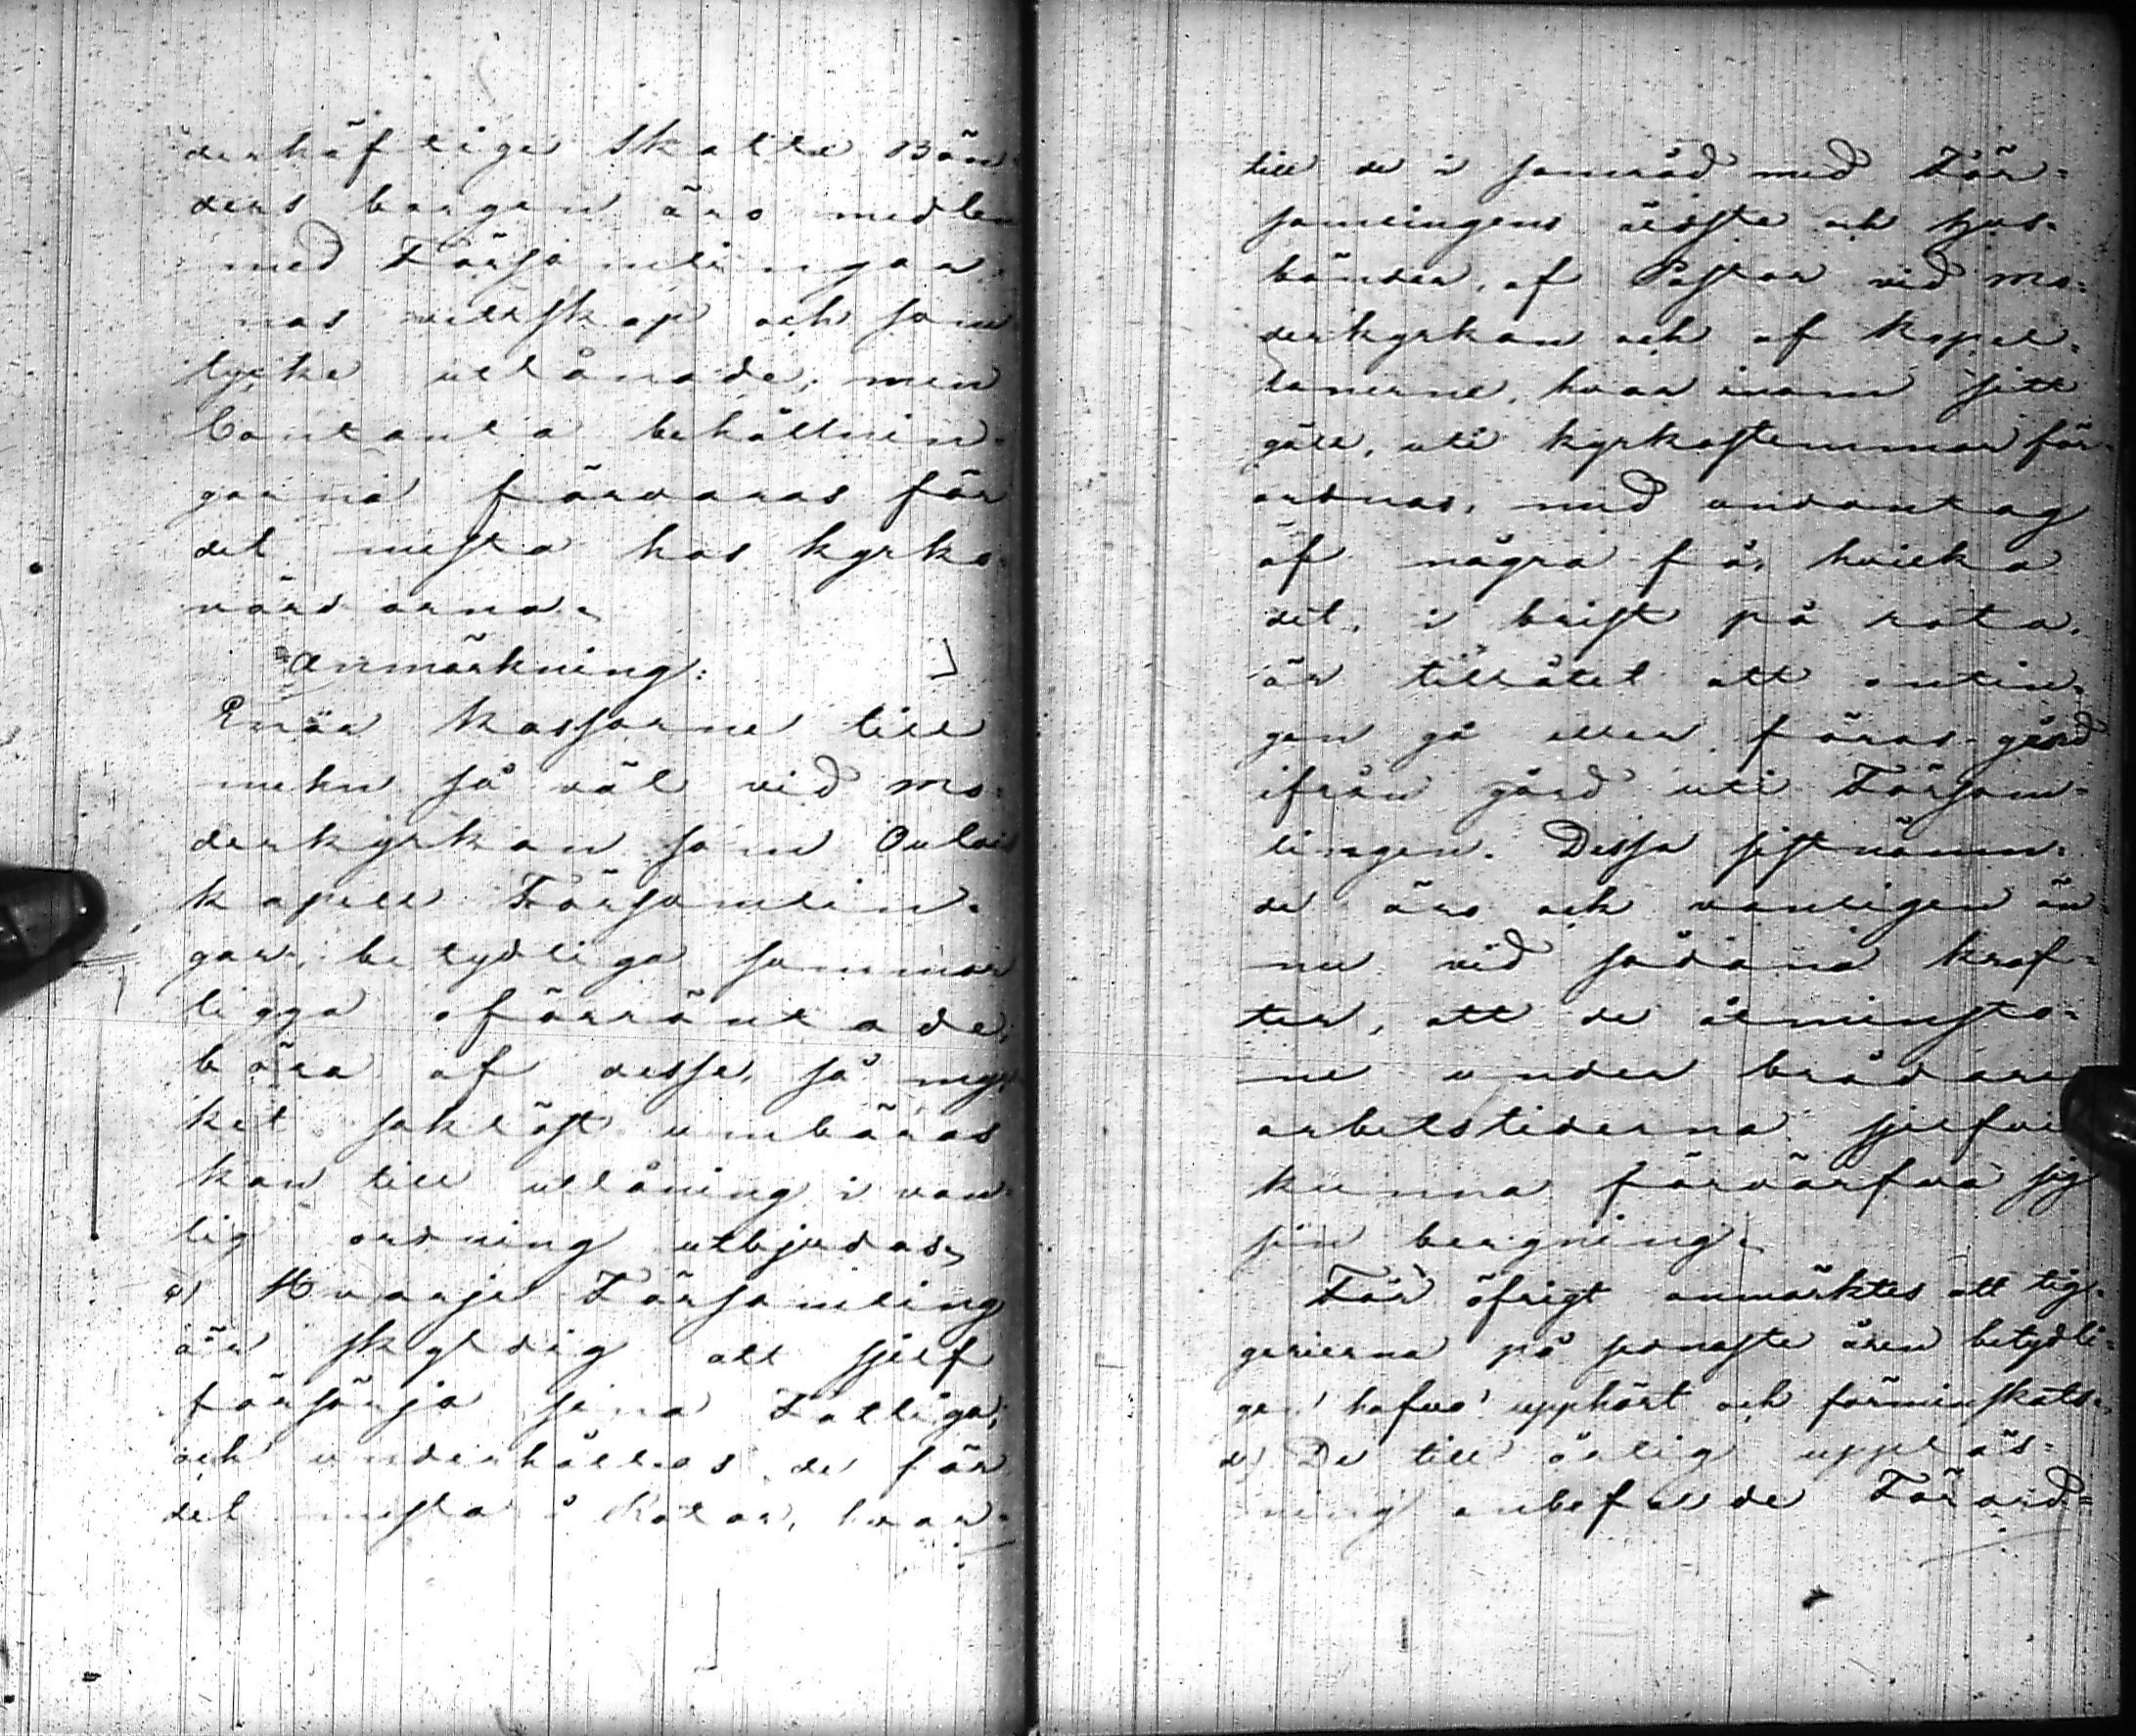 derhäftige Skatte Bön-
ders borgen äro medlen
med Församlingar-
nas vettskap och sam-
tycke utlånade; men
Contanta behållnin-
garna förvaras för
det mesta hos kyrko-
värdarna.
Anmärkning:
Enär kassorne till
mehn så väl vid Mo-
derkyrkan som Oulais
kapell Församlin-
gar, betydliga summor
ligga oförräntade,
böra af dessa, så myc-
ket saklöst umbäras
kan till utlåning i van-
lig ordning utbjudas.
c) Hvarje Församling
är skyldig att sjelf
försörja sina Fattiga;
och underhållas de för
det mesta i Rotar, hvar-
till de i samråd med För-
samlingens äldste och hus-
bönder, af Pastor vid Mo-
derkyrkan och af Kapel-
lanerne, hvar inom sitt
gäll, uti kyrkostemmor för-
ordnas, med undantag
af några få, hvilka
det, i brist på rota,
är tillåtet att antin-
gen gå eller föras gård
ifrån gård uti Försam-
lingen. Dessa sistnämn-
de äro ock vanligen än
nu vid sådana kraf-
ter, att de åtminsto-
ne under brådare
arbetstiderna sjelfve
kunna förvärfva sig
sin bergning.
För öfrigt anmärktes att tig-
gerierna på senaste åren betydli-
gen hafva upphört och förminskats.
d) De till årlig uppläs-
ning anbefallde Förord-